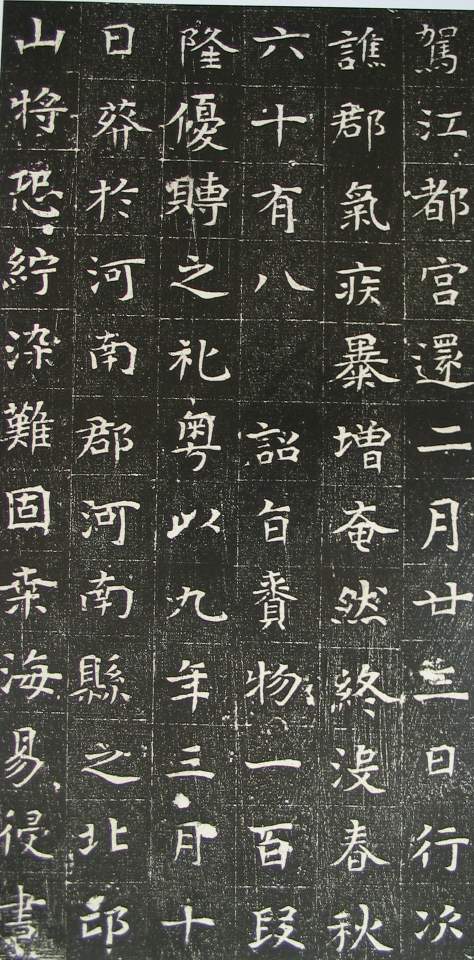 駕江都宮還二月廿三日行次
譙郡氣疾暴增奄然終没春秋
六十有八 詔旨賚物一百段
隆優賻之礼粤以九年三月十
日葬於河南郡河南縣之北邙
山將恐紵染難固桒海易侵書